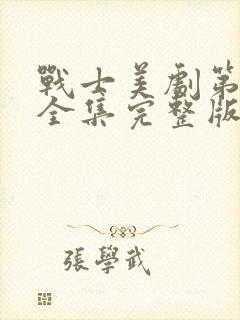 戰士美劇第
全集完整版
張學武